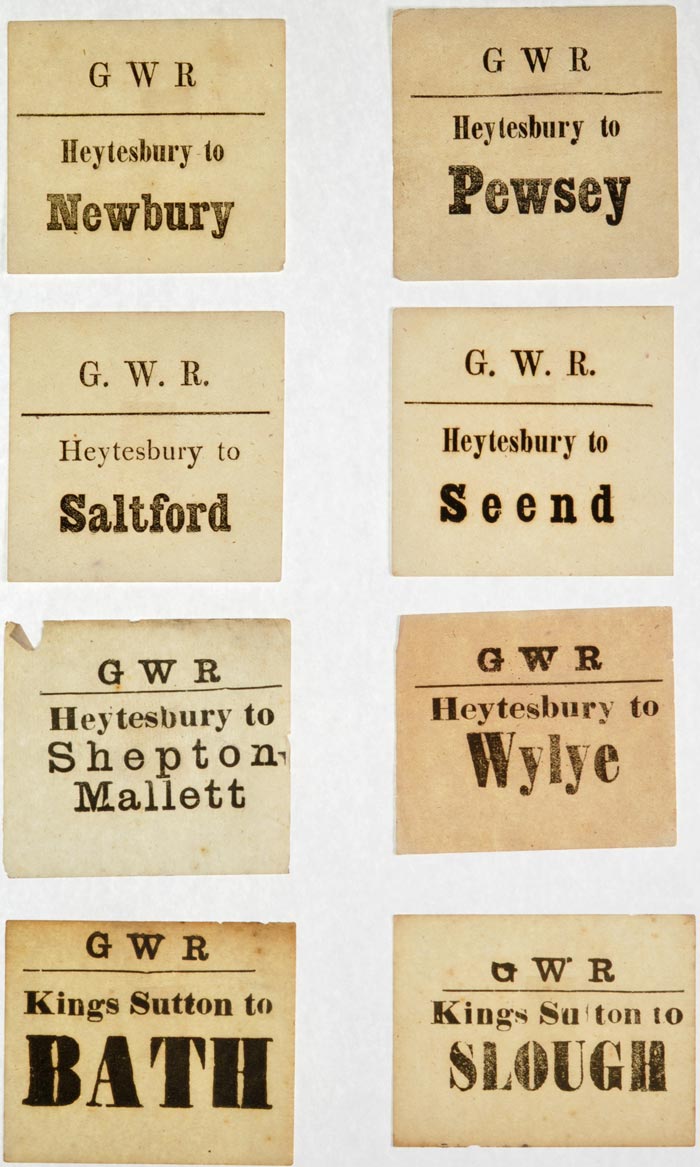 G W R
Heytesbury to
Newbury
G W R
Heytesbury to
Pewsey
G. W. R.
Heytesbury to
Saltford
G. W. R.
Heytesbury to
Seend
G W R
Heytesbury to
Shepton
Mallett
G W R
Heytesbury to
Wylye
G W R
Kings Sutton to
BATH
G W R
Kings Sutton to
SLOUGH